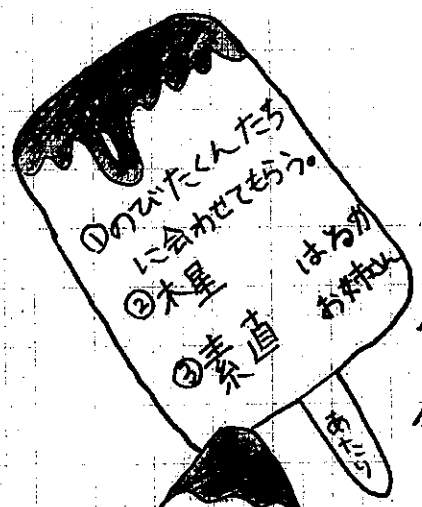 ①のびたくんたち
に会わせてもらう。
②木星
③素直
はるか
お姉さん
あたり